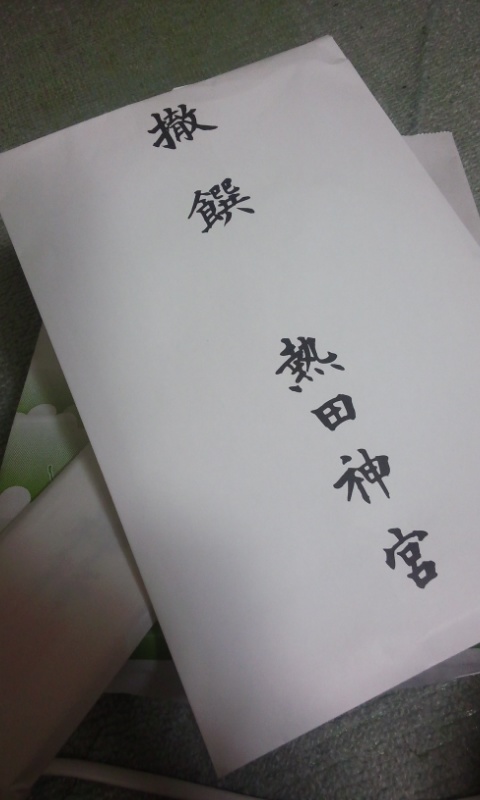 撤饌
熱田神宮